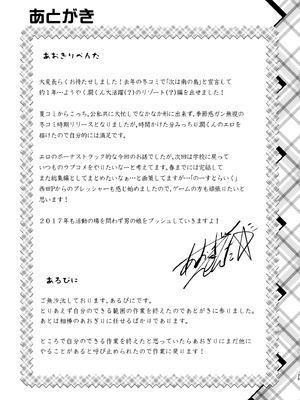 あとがき
あおきりぺんた
大変長らくお待たせしました！去年の冬コミで「次は南の島」と宣言して
約１年…ようやく潤くん大活躍(？)のリゾート(？)編を出せました！
夏コミからこっち、公私共に大忙しでなかなか形に出来ず、季節感ガン無視の
冬コミ時期リリースとなりましたが、時間かけた分みっちり潤くんのエロを
描けたので自分的には満足です。
エロのボーナストラック的な今回のお話でしたが、次回は学校に戻って
いつものラブコメをやりたいなーと考えてます。春までには完結して
また総集編としてまとめたいなぁ…と画策してますが…「のーすとらいく」
西田Pからのプレッシャーも感じ始めましたので、ゲームの方も頑張りたいと
思います！
２０１７年も活動の場を問わず男の娘をプッシュしていきますよ！
あるぴに
ご無沙汰しております。あるぴにです。
とりあえず自分のできる範囲の作業を終えたのであとがきに参りました。
あとは相棒のあおぎりに任せるばかりであります。
ところで自分のできる作業を終えたと思っていたらあおぎりにまだ他に
やることがあると呼び止められたので作業に戻ります！